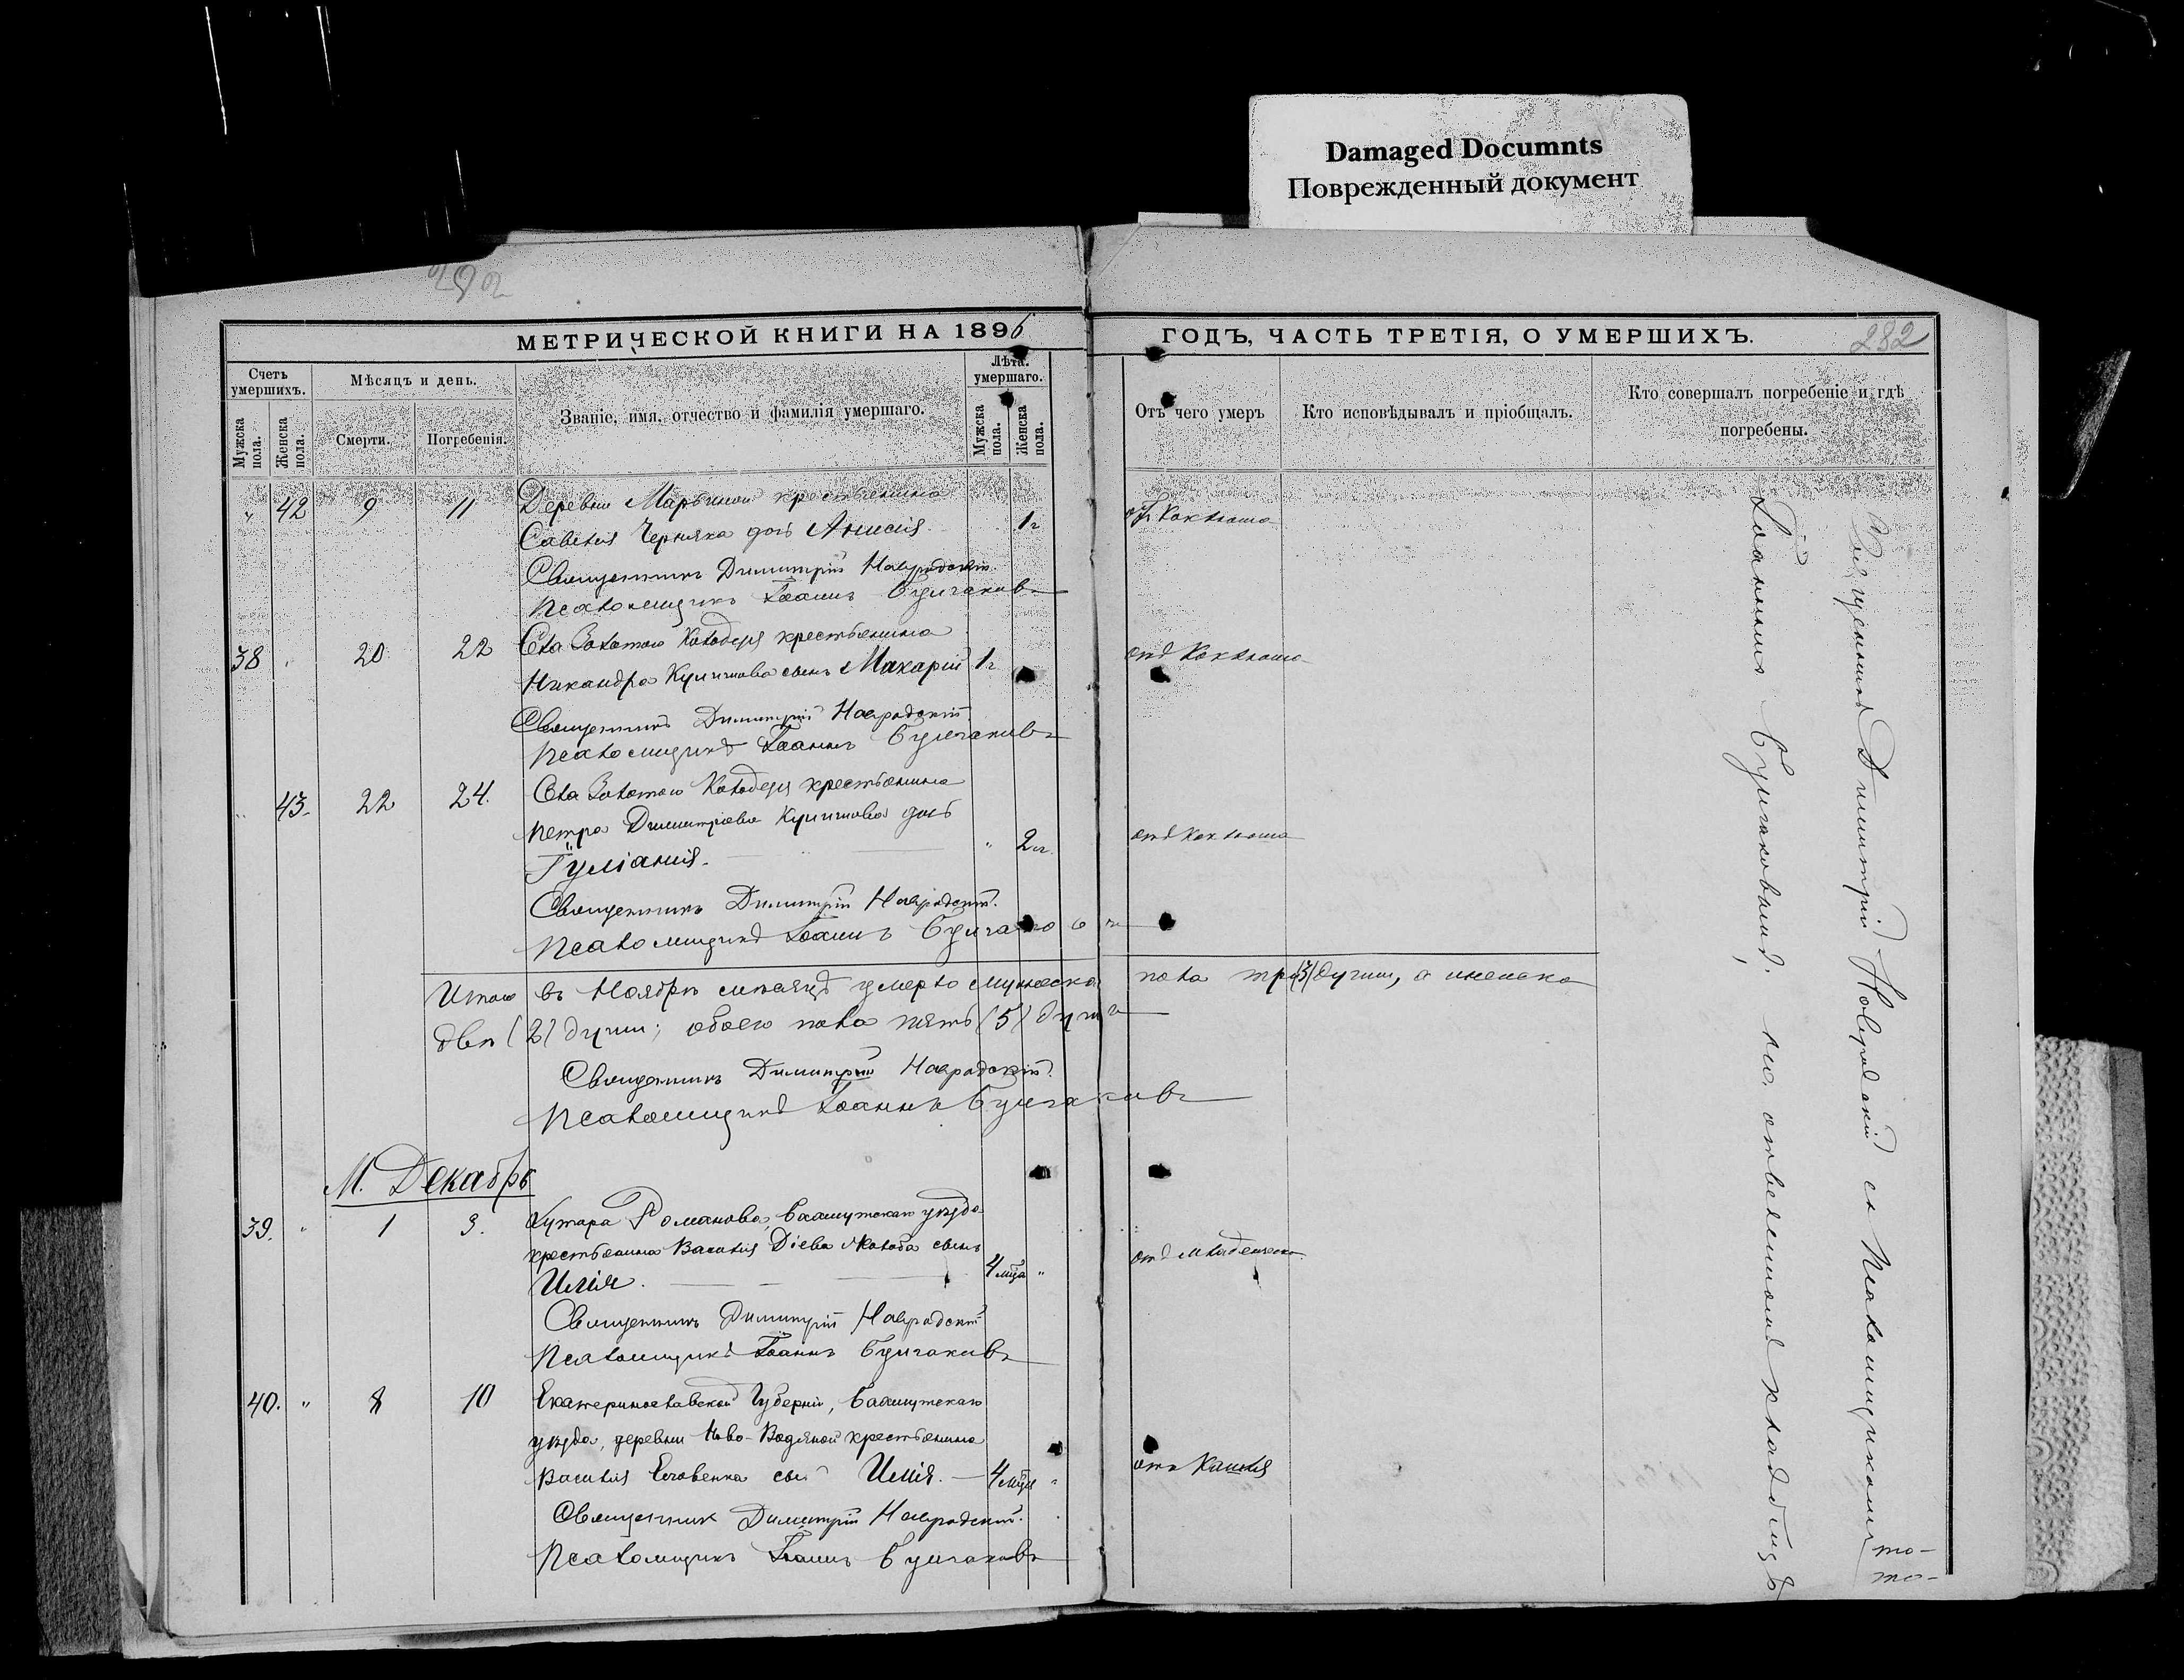 Damaged Documnts
Поврежденный документ
292
МЕТРИЧЕСКОЙ КНИГИ НА 1896 ГОДЪ, ЧАСТЬ ТРЕТІЯ, О УМЕРШИХЪ.
282
Счетъ умершихъ.
Мужска пола.
Женска пола.
Мѣсяцъ и день.
Смерти.
Погребенія.
Званіе, имя, отчество и фамилія умершаго.
Лѣта умершаго.
Мужска пола.
Женска пола.
Отъ чего умеръ
Кто исповѣдывалъ и пріобщалъ.
Кто совершалъ погребеніе и гдѣ погребены.
" 42 9 11 Деревни Марьиной крестьянина
Савелія Черняка дочь Анисія. 1 г. отъ Коклюша
Священникъ Димитрій Навродскій.
Псаломщикъ Іоаннъ Булгаковъ
38 " 20 22 Села Золотого Колодезя крестьянина
Никандра Куличкова сынъ Макарій 1 г. отъ Коклюша
Священникъ Димитрій Навродскій.
Псаломщикъ Іоаннъ Булгаковъ
" 43. 22 24. Села Золотого Колодезя крестьянина
Петра Димитріева Куличкова дочь
Іуліанія. " 2 г. отъ Коклюша
Священникъ Димитрій Навродскій.
Псаломщикъ Іоаннъ Булгаковъ
Итого въ Ноябрѣ мѣсяцѣ умерло мужеска пола три (3) души, а женска
двѣ (2) души; обоего пола пять (5) душъ
Священникъ Димитрій Навродскій.
Псаломщикъ Іоаннъ Булгаковъ
М. Декабрь
39. " 1 3. Хутора Романова, Бахмутскаго уѣзда
крестьянина Василія Діева сынъ
Илія. 4 мца " отъ младенческ.
Священникъ Димитрій Навродскій
Псаломщикъ Іоаннъ Булгаковъ
40. " 8 10 Екатеринославской Губерніи, Бахмутскаго
уѣзда, деревни Ново-Водяной крестьянина
Василія сынъ Илія. 4 мца " отъ Кашля
Священникъ Димитрій Навродскій.
Псаломщикъ Іоаннъ Булгаковъ
Священникъ Димитрій Навродскій съ Псаломщикомъ
Іоанномъ Булгаковымъ, на отведенномъ кладбищѣ